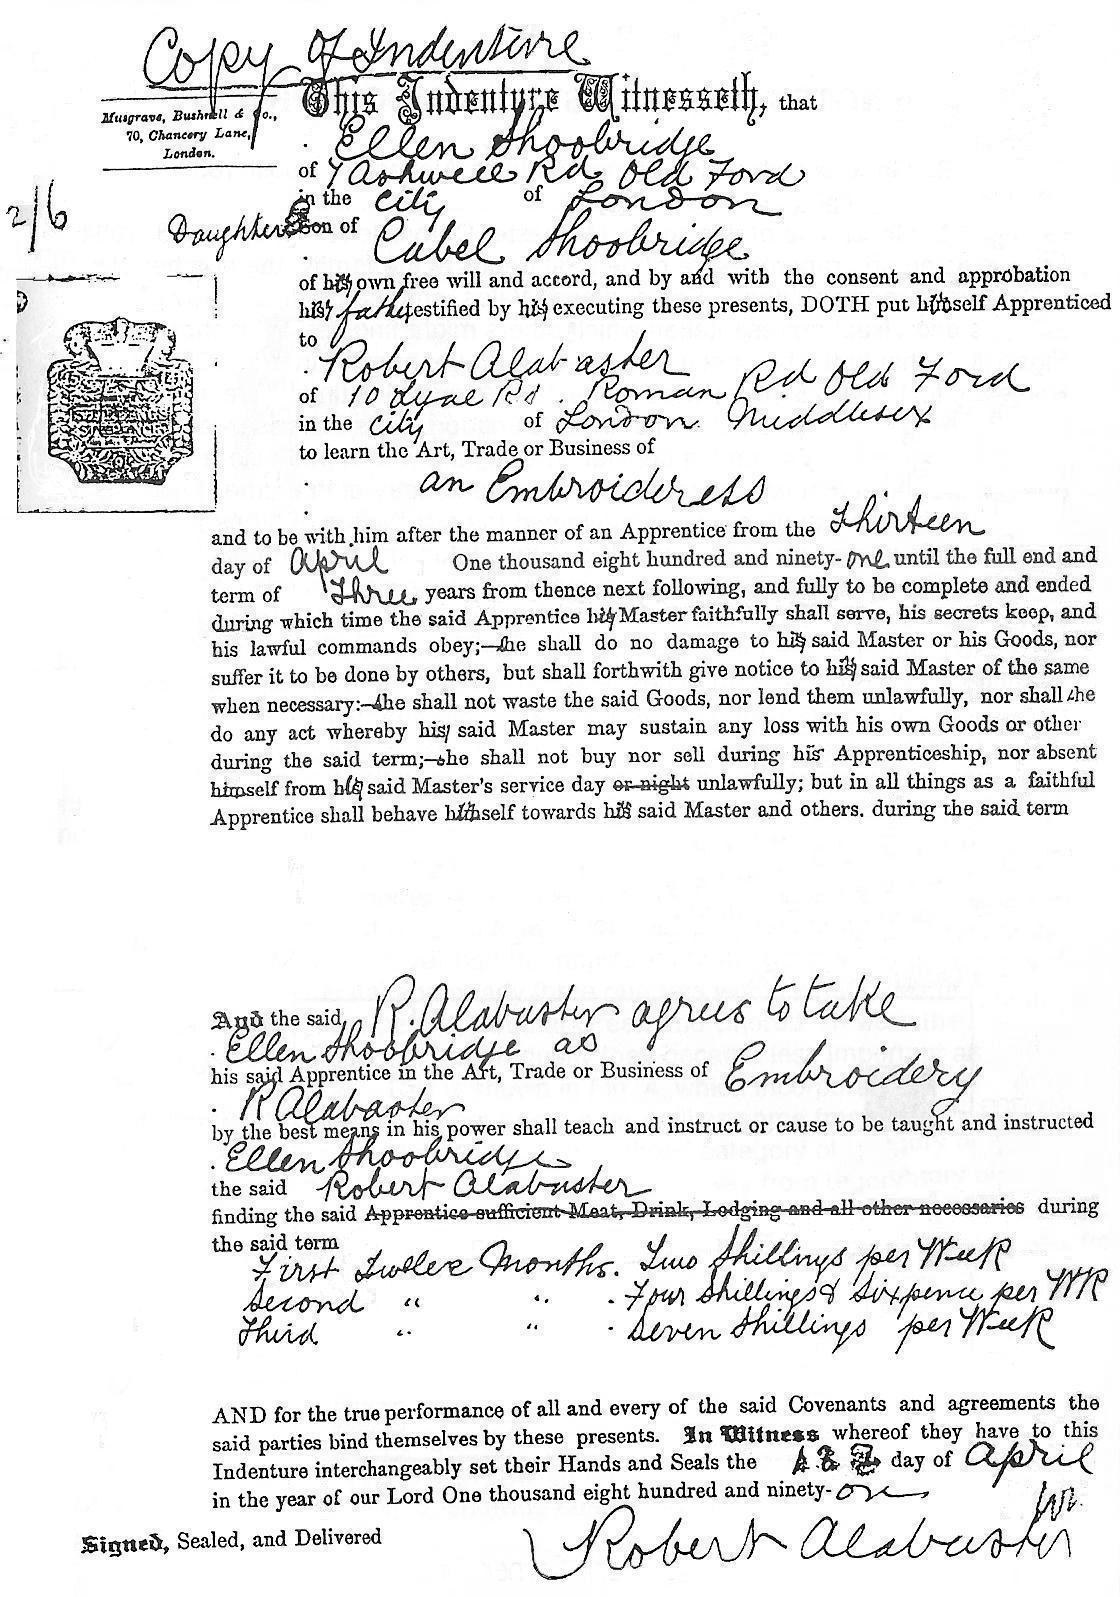 Copy of Indenture
Musgrave, Bushnell & Co.,
70, Chancery Lane,
London.
This Indenture Witnesseth, that
Ellen Shoobridge
of 7 Ashwell Rd Old Ford
in the City of London
2/6
Daughter Son of
Cabel Shoobridge
of his own free will and accord, and by and with the consent and approbation
his father testified by his executing these presents, DOTH put himself Apprenticed
to
Robert Alabaster
of 10 Lyal Rd. Roman Rd Old Ford
in the City of London Middlesex
to learn the Art, Trade or Business of
an Embroideress
and to be with him after the manner of an Apprentice from the Thirteen
day of April One thousand eight hundred and ninety-one until the full end and
term of Three years from thence next following, and fully to be complete and ended
during which time the said Apprentice his Master faithfully shall serve, his secrets keep, and
his lawful commands obey;—she shall do no damage to his said Master or his Goods, nor
suffer it to be done by others, but shall forthwith give notice to his said Master of the same
when necessary:—she shall not waste the said Goods, nor lend them unlawfully, nor shall she
do any act whereby his said Master may sustain any loss with his own Goods or other
during the said term;—she shall not buy nor sell during his Apprenticeship, nor absent
himself from his said Master's service day or night unlawfully; but in all things as a faithful
Apprentice shall behave himself towards his said Master and others. during the said term
And the said R. Alabaster agrees to take
Ellen Shoobridge as
his said Apprentice in the Art, Trade or Business of Embroidery
R Alabaster
by the best means in his power shall teach and instruct or cause to be taught and instructed
Ellen Shoobridge
the said Robert Alabaster
finding the said Apprentice sufficient Meat, Drink, Lodging and all other necessaries during
the said term
First Twelve Months. Two Shillings per Week
Second " " . Four Shillings & Sixpence per WK
Third " " . Seven Shillings per Week
AND for the true performance of all and every of the said Covenants and agreements the
said parties bind themselves by these presents. In Witness whereof they have to this
Indenture interchangeably set their Hands and Seals the day of April
in the year of our Lord One thousand eight hundred and ninety-one
Signed, Sealed, and Delivered
Robert Alabaster